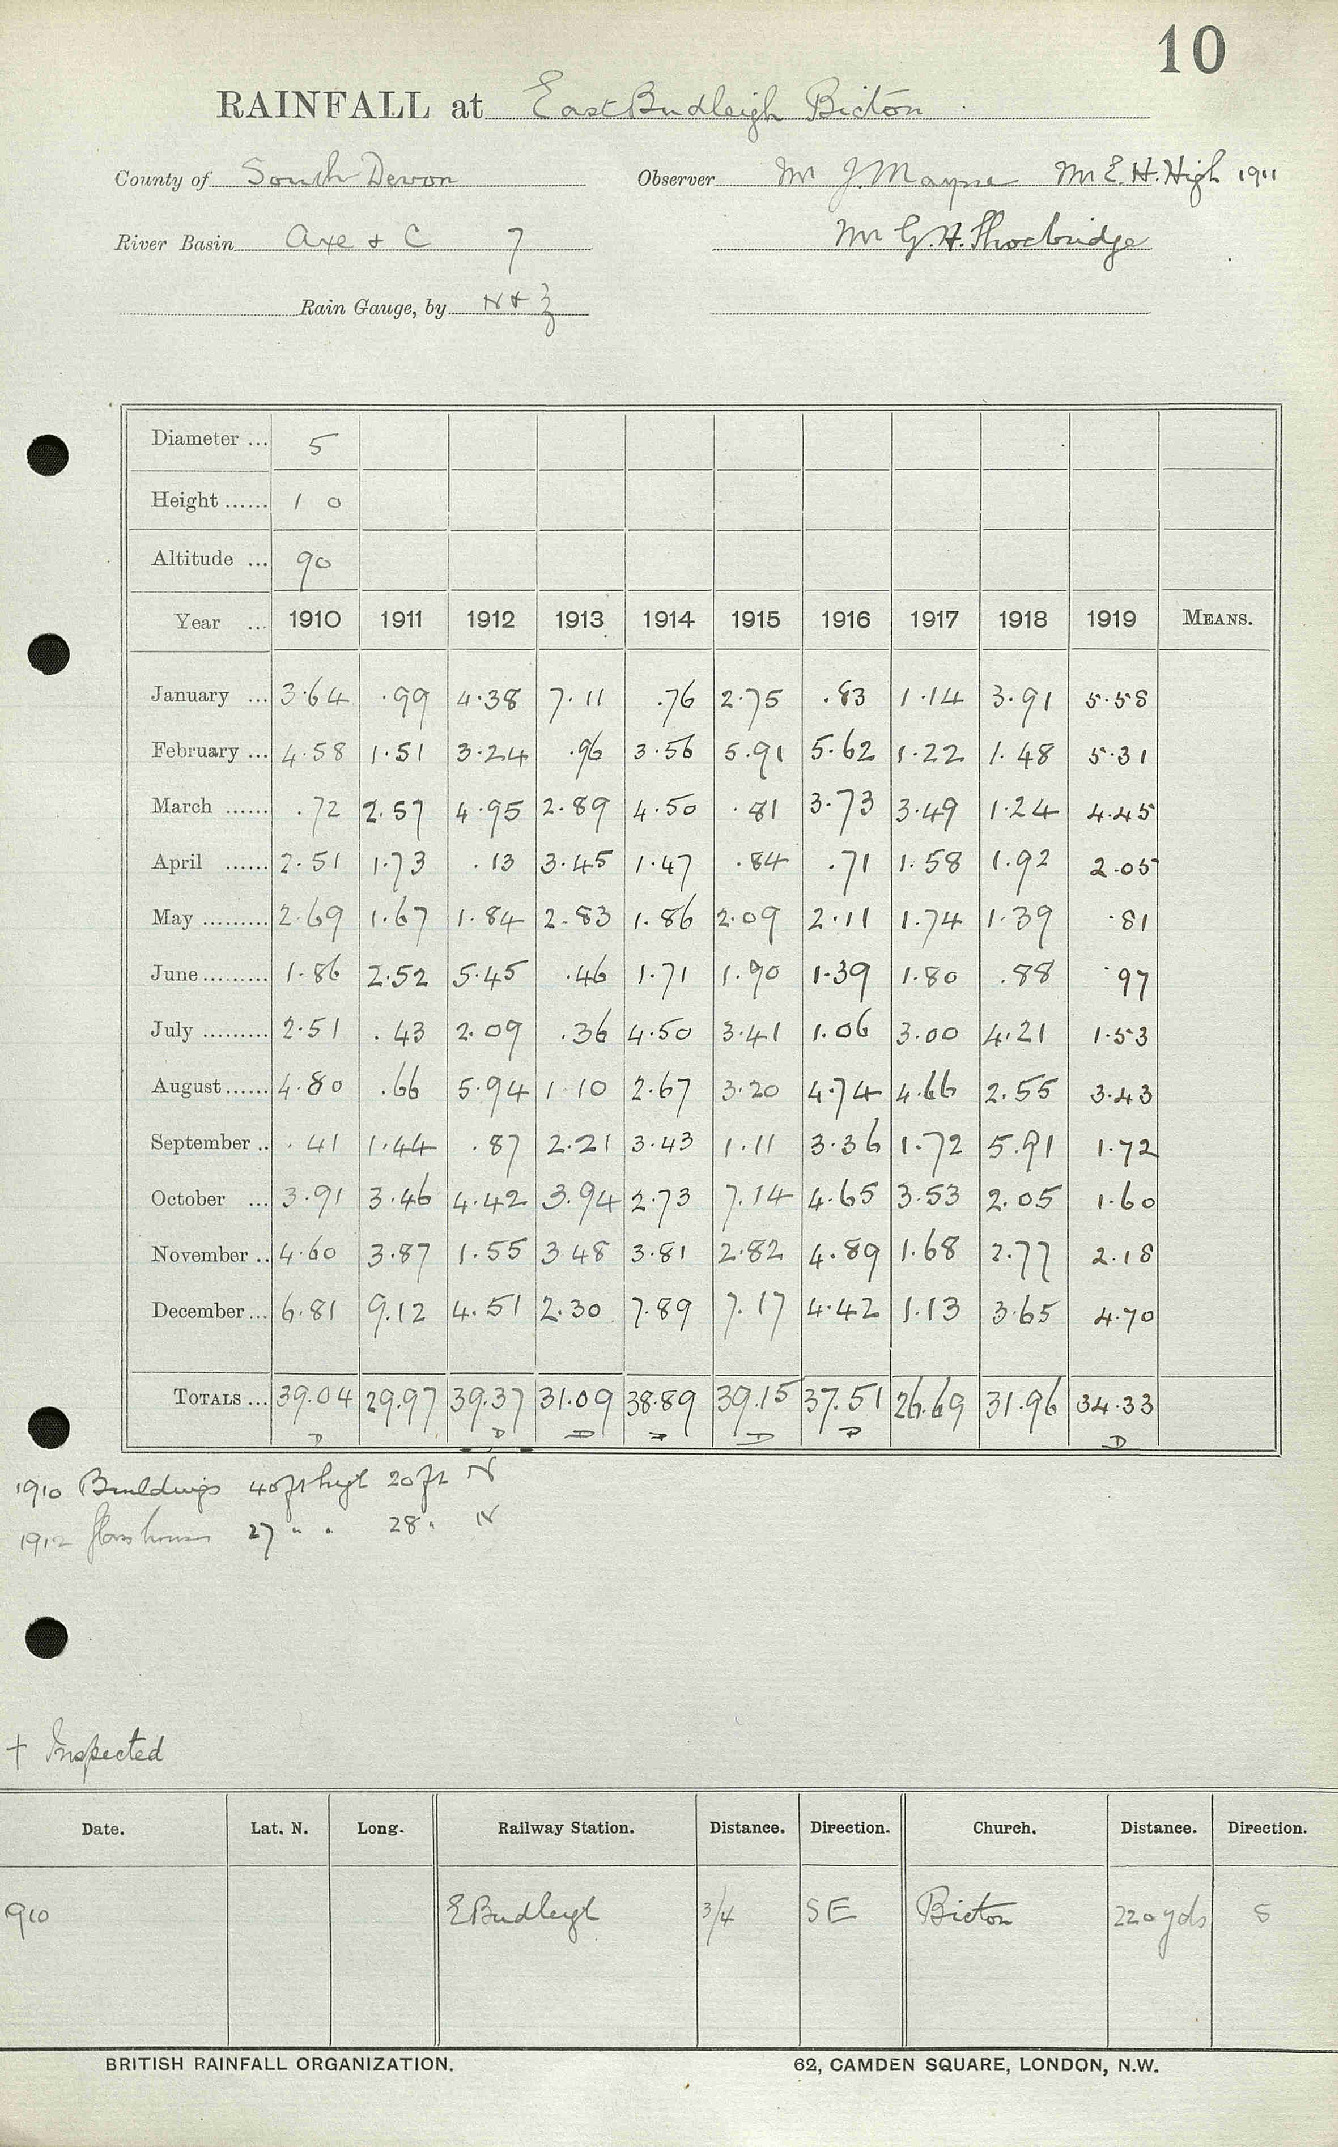 10
RAINFALL at East Budleigh Bicton
County of South Devon Observer Mr J. Mayne Mr E. H. High 1911
River Basin Axe & C 7 Mr G. H.
Rain Gauge, by N & Z
Diameter ... 5
Height ...... 1 0
Altitude ... 90
Year ... 1910 1911 1912 1913 1914 1915 1916 1917 1918 1919 MEANS.
January ... 3.64 .99 4.38 7.11 .76 2.75 .83 1.14 3.91 5.58
February ... 4.58 1.51 3.24 .96 3.56 5.91 5.62 1.22 1.48 5.31
March ...... .72 2.57 4.95 2.89 4.50 .81 3.73 3.49 1.24 4.45
April ...... 2.51 1.73 .13 3.45 1.47 .84 .71 1.58 1.92 2.05
May ......... 2.69 1.67 1.84 2.83 1.86 2.09 2.11 1.74 1.39 .81
June ......... 1.86 2.52 5.45 .46 1.71 1.90 1.39 1.80 .88 .97
July ......... 2.51 .43 2.09 .36 4.50 3.41 1.06 3.00 4.21 1.53
August ...... 4.80 .66 5.94 1.10 2.67 3.20 4.74 4.66 2.55 3.43
September .. .41 1.44 .87 2.21 3.43 1.11 3.36 1.72 5.91 1.72
October ... 3.91 3.46 4.42 3.94 2.73 7.14 4.65 3.53 2.05 1.60
November .. 4.60 3.87 1.55 3.48 3.81 2.82 4.89 1.68 2.77 2.18
December ... 6.81 9.12 4.51 2.30 7.89 7.17 4.42 1.13 3.65 4.70
TOTALS ... 39.04 29.97 39.37 31.09 38.89 39.15 37.51 26.69 31.96 34.33
D D D D D D D
1910 Buildings 40 ft high 20 ft N
1912 Glass houses 27 " " 28 " N
† Inspected
Date. Lat. N. Long. Railway Station. Distance. Direction. Church. Distance. Direction.
910 E Budleigh 3/4 SE Bicton 220 yds S
BRITISH RAINFALL ORGANIZATION. 62, CAMDEN SQUARE, LONDON, N.W.